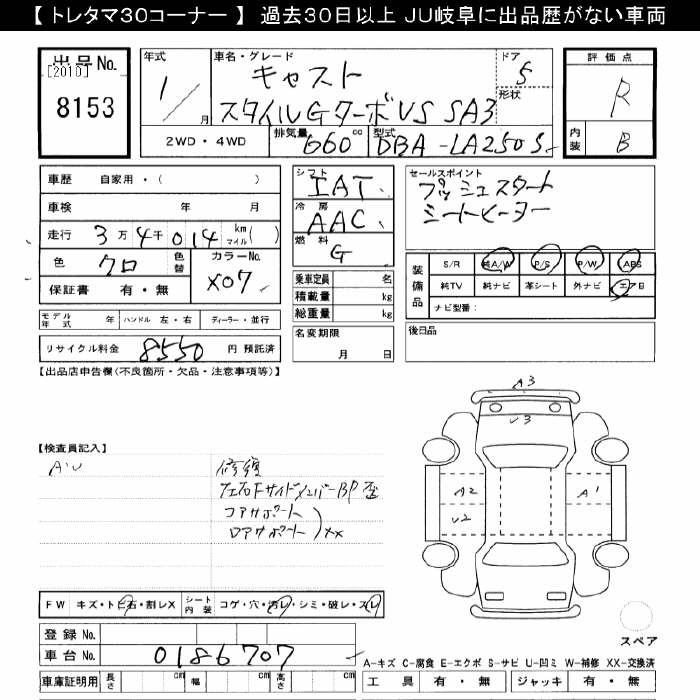 【 トレタマ30コーナー 】 過去30日以上 JU岐阜に出品歴がない車両
出品No.
[2010]
8153
年式
1/
月
車名・グレード
キャスト
スタイルGターボVS SA3
ドア
5
形状
評価点
R
内装
B
2WD・4WD
排気量
660
cc
型式
DBA-LA250S
車歴 自家用・( )
車検 年 月
走行 3万4千014 km マイル( )
色 クロ 色替 カラーNo. X07
保証書 有・無
モデル年式 年 ハンドル 左・右 ディーラー・並行
リサイクル料金 8550 円 預託済
シフト
IAT
冷房
AAC
燃料
G
乗車定員 名
積載量 kg
総重量 kg
名変期限
月 日
セールスポイント
プッシュスタート
シートヒーター
装備品
S/R 純A/W P/S P/W ABS
純TV 純ナビ 革シート 外ナビ エアB
ナビ型番:
後日品
【出品店申告欄(不良箇所・欠品・注意事項等)】
【検査員記入】
AU
修復
左右FサイドメンバーBP歪
コアサポート
ロアサポート
XX
A3
U3
A2
U2
A1
スペア
FW キズ・トビ石・割レX シート内装 コゲ・穴・汚レ・シミ・破レ・スレ
登録No.
車台No. 0186707
車庫証明用 長さ cm 幅 cm 高さ cm
A-キズ C-腐食 E-エクボ S-サビ U-凹ミ W-補修 XX-交換済
工具 有・無 ジャッキ 有・無